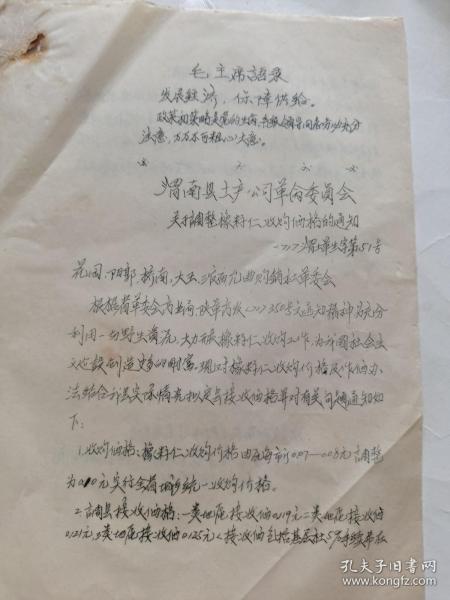 毛主席語录
发展经济，保障供给。
政策和策略是党的生命，各级领导同志务必充分
注意，万万不可粗心大意。
渭南县土产公司革命委员会
关于調整橡籽仁收购价格的通知
渭革生字第51号
花园、阳郭、桥南、大王 购销社革委会
根据省革委会商业局 350号文通知精神 充分
利用一切野生資源，大力开展橡籽仁收购工作，为祖国社会主
义建設創造更多的財富。現对橡籽仁收购价格及作价办
法結合 县实际情况拟定 接收价格并对有关問題通知如
下：
1.收购价格：橡籽仁收购价格由 0.07—0.08元調整
为0.10元实行全省城乡統一收购价格。
2.調县接收价格：一类地区接收价0.119元二类地区接收价
0.121元，三类地区接收价0.125元（接收价包括基层社5%手续费在
孔夫子旧书网